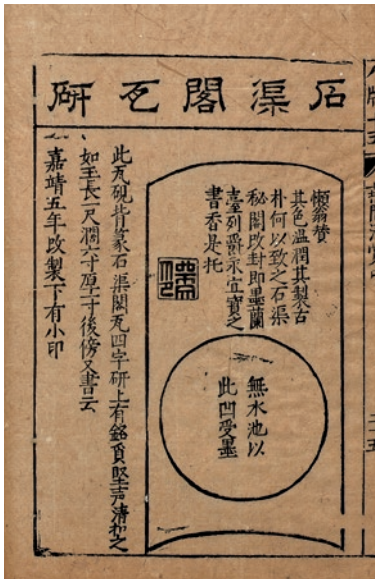 石渠閣瓦研
懶翁贊
其色溫潤其製古
朴何以致之石渠
秘閣改封即墨蘭
臺列爵永宜寶之
書香是托
無水池以
此凹受墨
此瓦硯背篆石渠閣瓦四字研上有銘質堅声清扣之
如玉長一尺濶六寸厚二寸後傍又書云
嘉靖五年改製下有小印